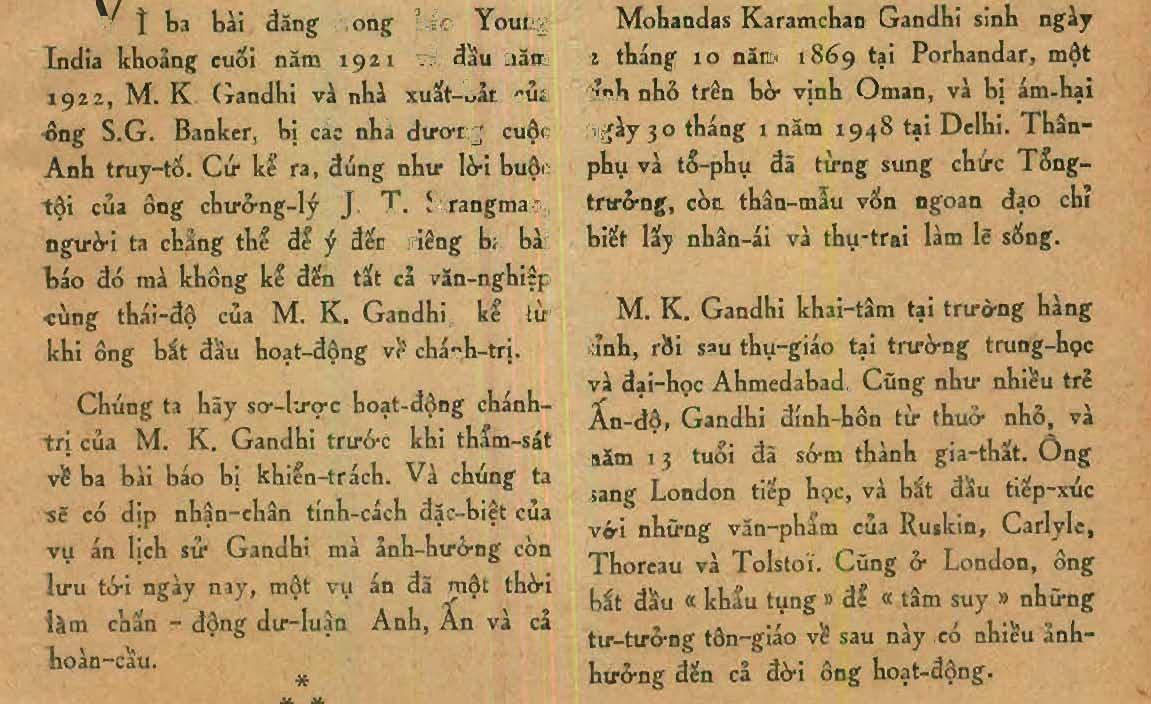 VÌ ba bài đăng trong báo Young
India khoảng cuối năm 1921 và đầu năm
1922, M. K. Gandhi và nhà xuất-bản của
ông S.G. Banker, bị các nhà đương cuộc
Anh truy-tố. Cứ kể ra, đúng như lời buộc
tội của ông chưởng-lý J. T. Strangman,
người ta chẳng thể để ý đến riêng ba bài
báo đó mà không kể đến tất cả văn-nghiệp
cùng thái-độ của M. K. Gandhi, kể từ
khi ông bắt đầu hoạt-động về chánh-trị.
Chúng ta hãy sơ-lược hoạt-động chánh-
trị của M. K. Gandhi trước khi thẩm-sát
về ba bài báo bị khiển-trách. Và chúng ta
sẽ có dịp nhận-chân tính-cách đặc-biệt của
vụ án lịch sử Gandhi mà ảnh-hưởng còn
lưu tới ngày nay, một vụ án đã một thời
làm chấn - động dư-luận Anh, Ấn và cả
hoàn-cầu.
*
* *
Mohandas Karamchan Gandhi sinh ngày
2 tháng 10 năm 1869 tại Porhandar, một
tỉnh nhỏ trên bờ vịnh Oman, và bị ám-hại
ngày 30 tháng 1 năm 1948 tại Delhi. Thân-
phụ và tổ-phụ đã từng sung chức Tổng-
trưởng, còn thân-mẫu vốn ngoan đạo chỉ
biết lấy nhân-ái và thụ-trai làm lẽ sống.
M. K. Gandhi khai-tâm tại trường hàng
tỉnh, rồi sau thụ-giáo tại trường trung-học
và đại-học Ahmedabad. Cũng như nhiều trẻ
Ấn-độ, Gandhi đính-hôn từ thuở nhỏ, và
năm 13 tuổi đã sớm thành gia-thất. Ông
sang London tiếp học, và bắt đầu tiếp-xúc
với những văn-phẩm của Ruskin, Carlyle,
Thoreau và Tolstoï. Cũng ở London, ông
bắt đầu « khẩu tụng » để « tâm suy » những
tư-tưởng tôn-giáo về sau này có nhiều ảnh-
hưởng đến cả đời ông hoạt-động.